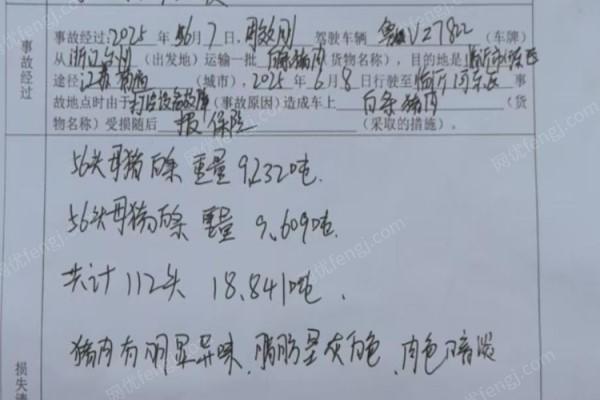 事故经过
事故经过:2025年6月7日 驾驶车辆 VZ7822(车牌)
从浙江台州(出发地)运输一批白条猪肉(货物名称),目的地是临沂市河东区
途径江苏 (城市),2025年6月8日行驶至临沂河东区 事
故地点时由于打冷设备故障(事故原因)造成车上 白条猪肉 (货
物名称)受损随后 报保险 (采取的措施)。
56头母猪白条 重量 9.232吨.
56头母猪白条 重量 9.609吨.
共计112头 18.841吨.
猪肉有明显异味、脂肪呈灰白色、肉色暗淡
损失清